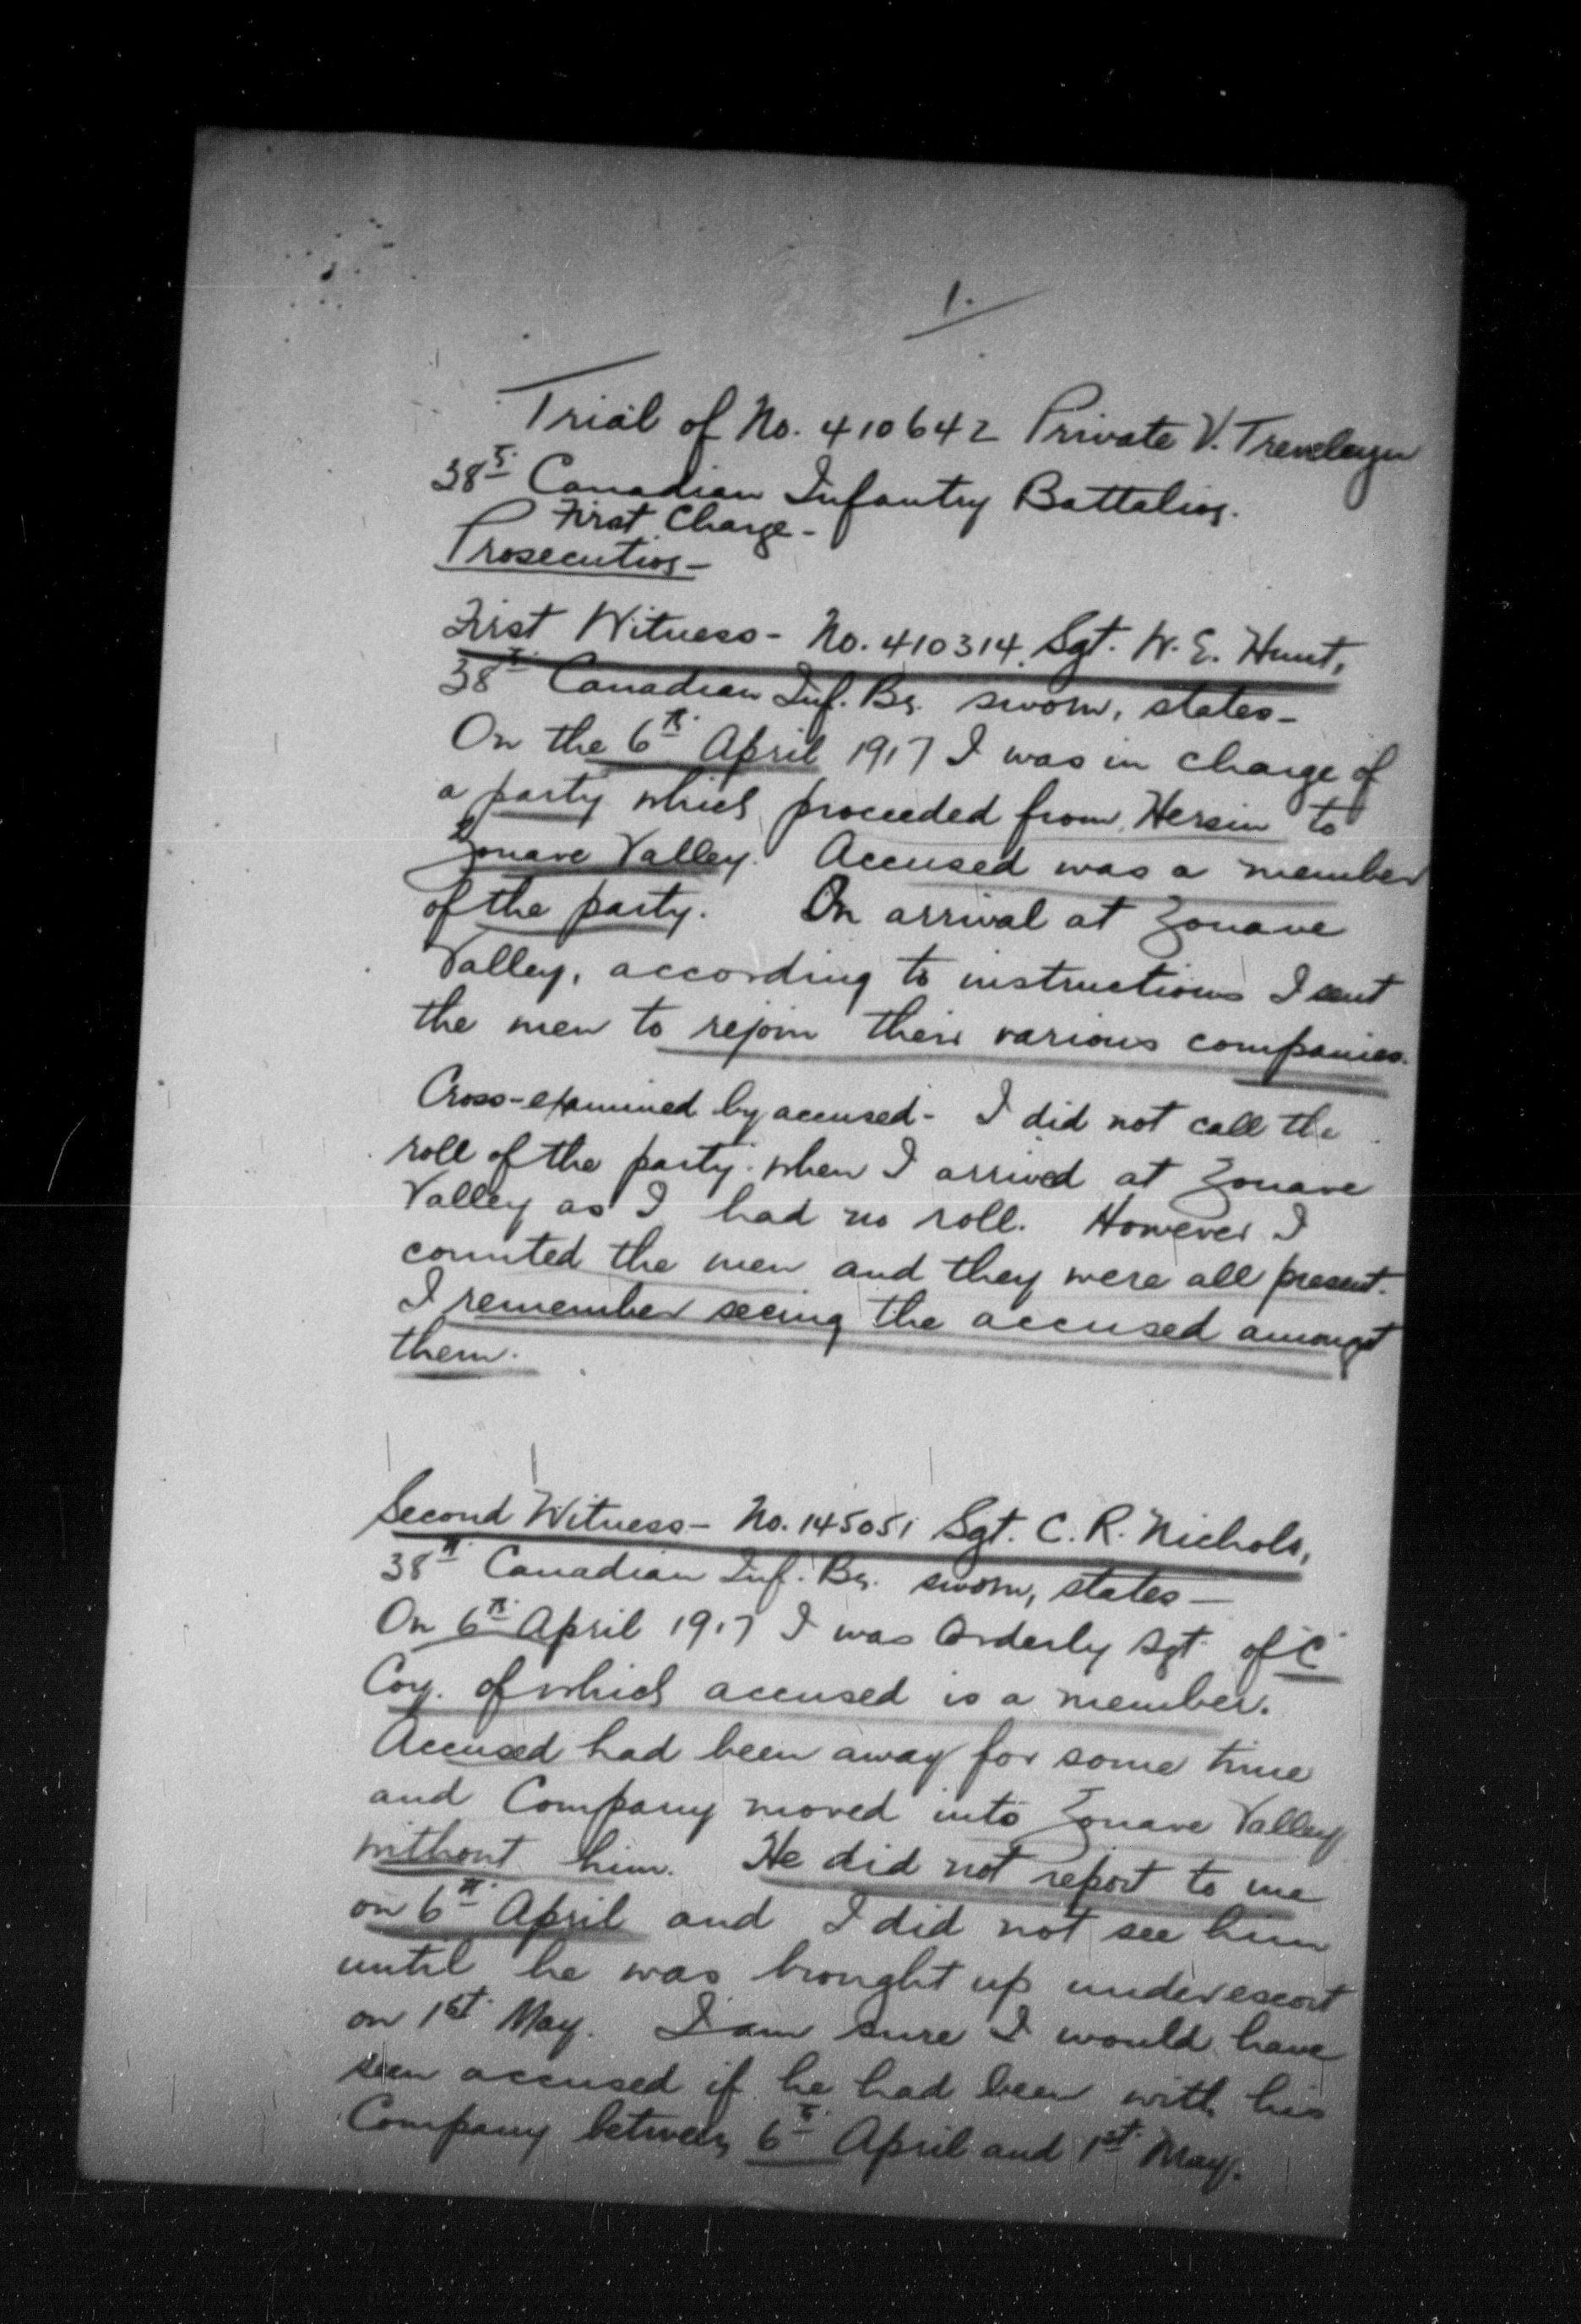 1.
Trial of No. 410642 Private V. Trevelayn
38th Canadian Infantry Battalion.
First Charge -
Prosecution -
First Witness - No. 410314 Sgt. W. E. Hunt,
38th Canadian Inf. Bn. sworn, states -
On the 6th April 1917 I was in charge of
a party which proceeded from Hersin to
Zouave Valley. Accused was a member
of the party. On arrival at Zouave
Valley, according to instructions I sent
the men to rejoin their various companies.
Cross-examined by accused - I did not call the
roll of the party when I arrived at Zouave
Valley as I had no roll. However I
counted the men and they were all present.
I remember seeing the accused amongst
them.
Second Witness - No. 145051 Sgt. C. R. Nichols,
38th Canadian Inf. Bn. sworn, states -
On 6th April 1917 I was Orderly Sgt. of "C"
Coy. of which accused is a member.
Accused had been away for some time
and Company moved into Zouave Valley
without him. He did not report to me
on 6th April and I did not see him
until he was brought up under escort
on 1st May. I am sure I would have
seen accused if he had been with his
Company between 6th April and 1st May.